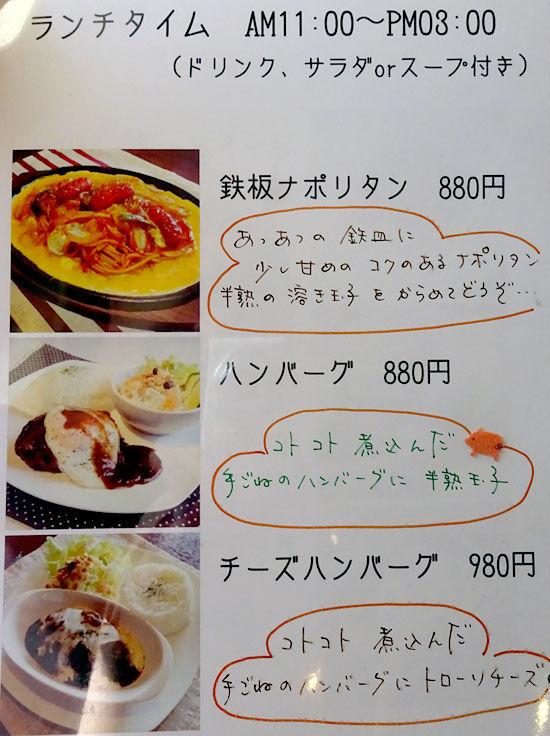 ランチタイム AM11:00～PM03:00
（ドリンク、サラダorスープ付き）
鉄板ナポリタン 880円
あつあつの 鉄皿に
少し甘めの コクのある ナポリタン
半熟の 溶き玉子 を からめて どうぞ…
ハンバーグ 880円
コトコト 煮込んだ
手ごねのハンバーグに 半熟玉子
チーズハンバーグ 980円
コトコト 煮込んだ
手ごねのハンバーグに トローリチーズ